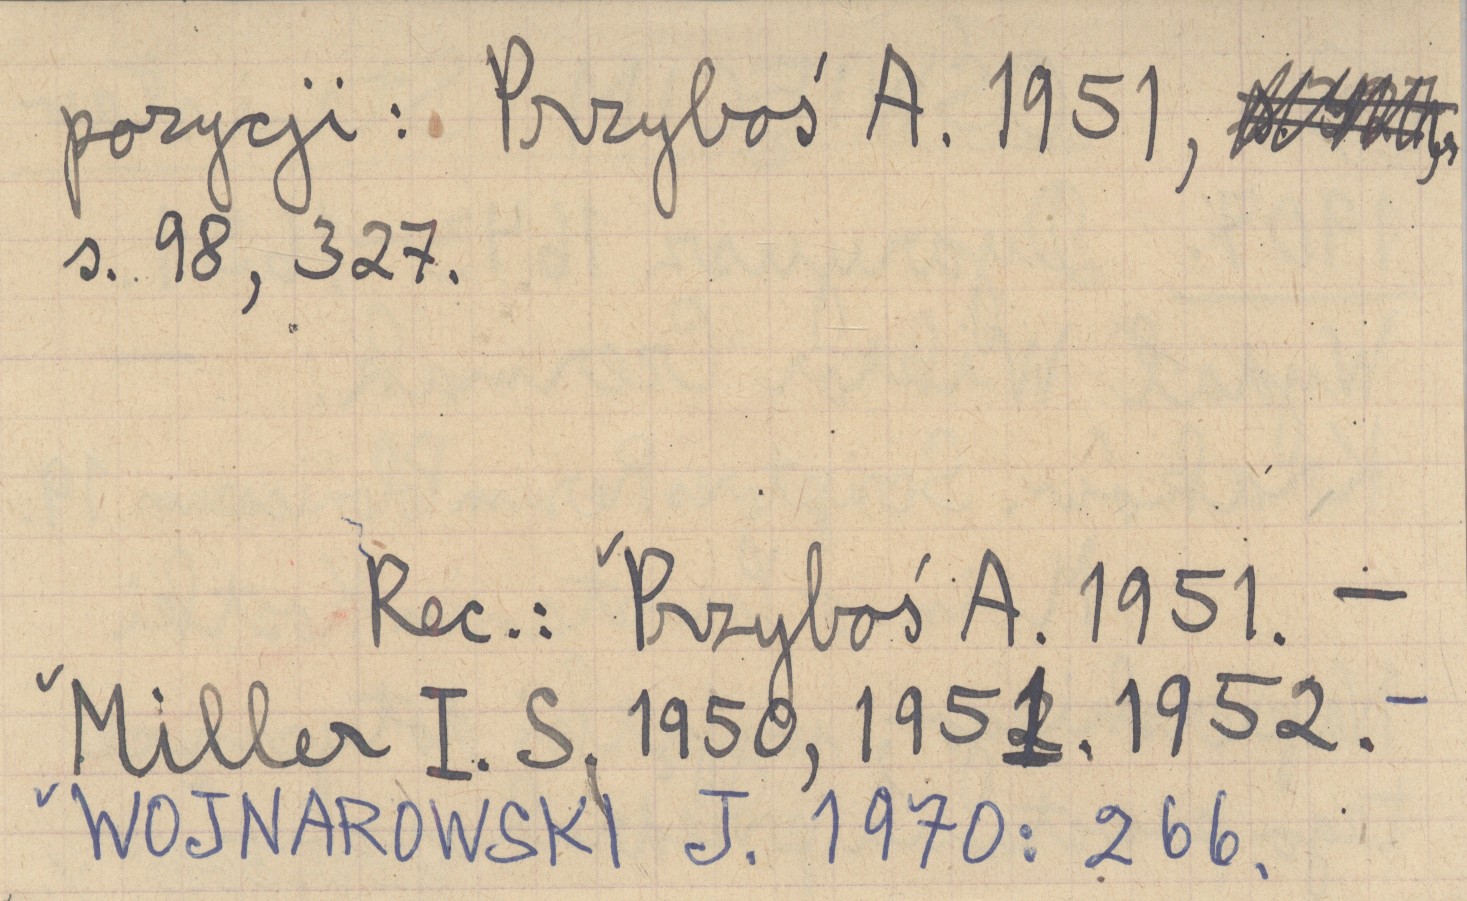 pozycji: Przyboś A. 1951,
s. 98, 327.
Rec.: ˇPrzyboś A. 1951. –
ˇMiller I. S. 1950, 1951. 1952. –
ˇWOJNAROWSKI J. 1970: 266.